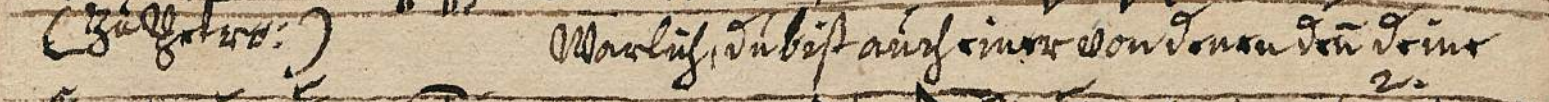 (Zu Petro:) Warlich, du bist auch einer von denen deñ deine
2.